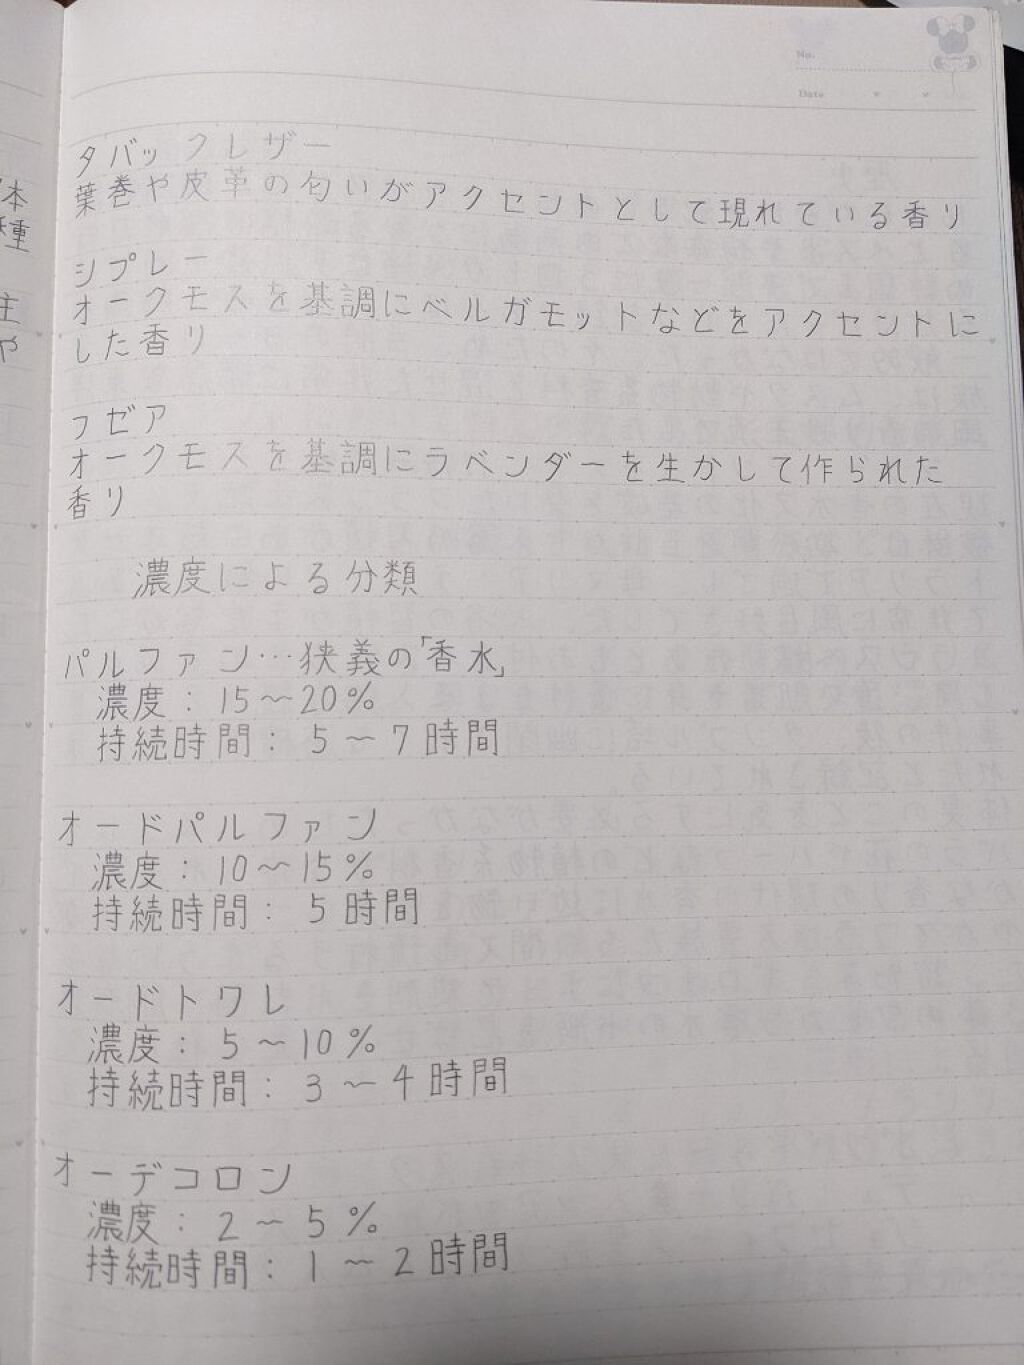 No.
Date
タバックレザー
葉巻や皮革の匂いがアクセントとして現れている香り
シプレー
オークモスを基調にベルガモットなどをアクセントに
した香り
フゼア
オークモスを基調にラベンダーを生かして作られた
香り
濃度による分類
パルファン…狭義の「香水」
濃度：15～20％
持続時間：5～7時間
オードパルファン
濃度：10～15％
持続時間：5時間
オードトワレ
濃度：5～10％
持続時間：3～4時間
オーデコロン
濃度：2～5％
持続時間：1～2時間